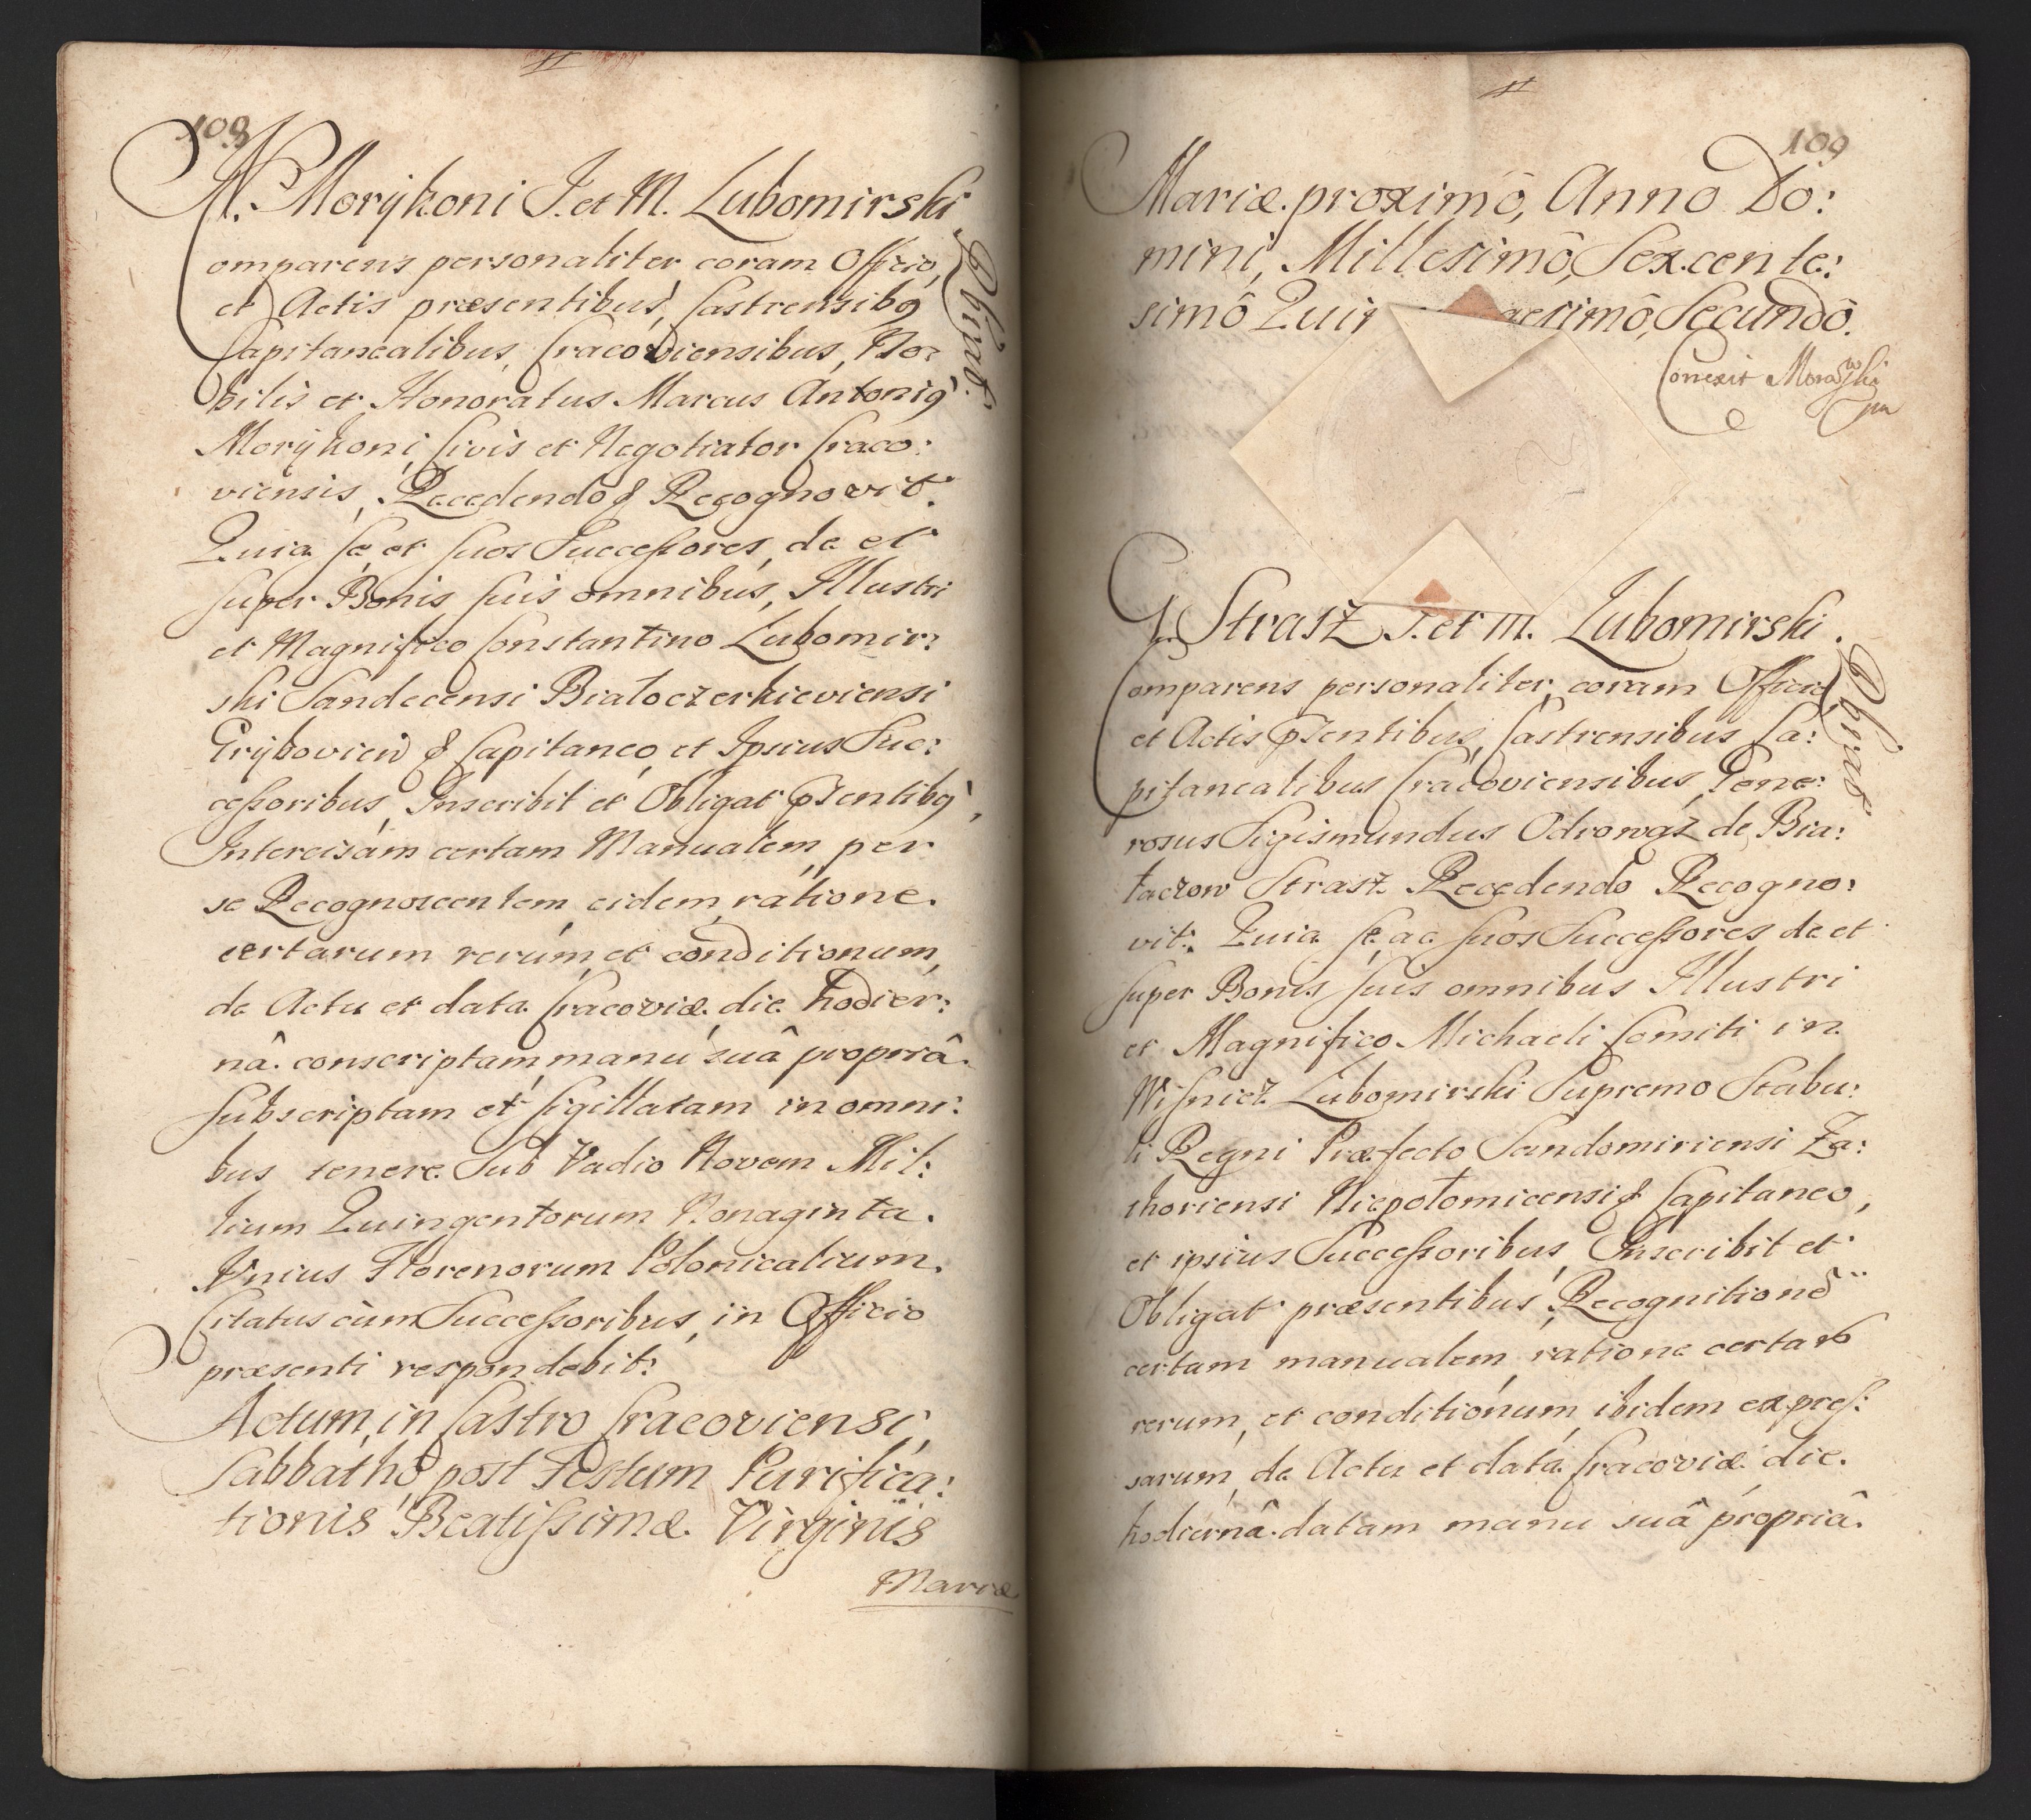 108
N. Morykoni I. et M. Lubomirski
Obligat.
Comparens personaliter coram Officio,
et Actis præsentibus, Castrensibꝰ
Capitanealibus, Cracoviensibus, No:
bilis et Honoratus Marcus Antoniꝰ
Morykoni, Civis et Negotiator Craco:
viensis, Recedendo & Recognovit.
Quia se et suos Successores, de et
super Bonis suis omnibus, Illustri
et Magnifico Constantino Lubomir:
ski Sandecensi Białoczerkieviensi
Grybovien & Capitaneo, et Ipsius Suc:
cessoribus, Inscribit et Obligat pñtentibꝰ,
Intercisam certam Manualem, per
se Recognoscentem, eidem, ratione
certarum rerum, et conditionum,
de Actu et data Cracoviæ die hodier:
nâ conscriptam, manu suâ propriâ
Subscriptam et sigillatam in omni:
bus tenere. Sub Vadio Novem Mil:
lium Quingentorum Nonaginta
Unius Florenorum Polonicalium.
Citatus cum Successoribus, in Officio
præsenti respondebit:
Actum, in Castro Cracoviensi,
Sabbathô, post Festum Purifica:
tionis Beatissimæ Virginis
Mariæ
109
Mariæ proximô, Anno Do:
mini, Millesimô, Sexcente:
simô Quin gesimô, Secundô.
Conexit Morawski
mp
Gn Strasz I. et M. Lubomirski.
Obligat.
Comparens personaliter, coram Officio
et Actis pñtentibus, Castrensibus Ca:
pitanealibus Cracoviensibus, Gene:
rosus Sigismundus Odrowąż de Bia:
łaczow Strasz. Recedendo Recogno:
vit: Quia se, ac suos Successores de et
super Bonis suis omnibus Illustri
et Magnifico Michaeli Comiti in
Wisnicz Lubomirski Supremo Stabu:
li Regni Præfecto Sandomiriensi Za:
thoriensi Niepołomicensi & Capitaneo,
et ipsius Successoribus, Inscribit et
Obligat præsentibus, Recognitionē
certam manualem, ratione certar
rerum, et conditionum, ibidem expres:
sarum, de Actu et data Cracoviæ die
hodiernâ datam manu suâ propriâ